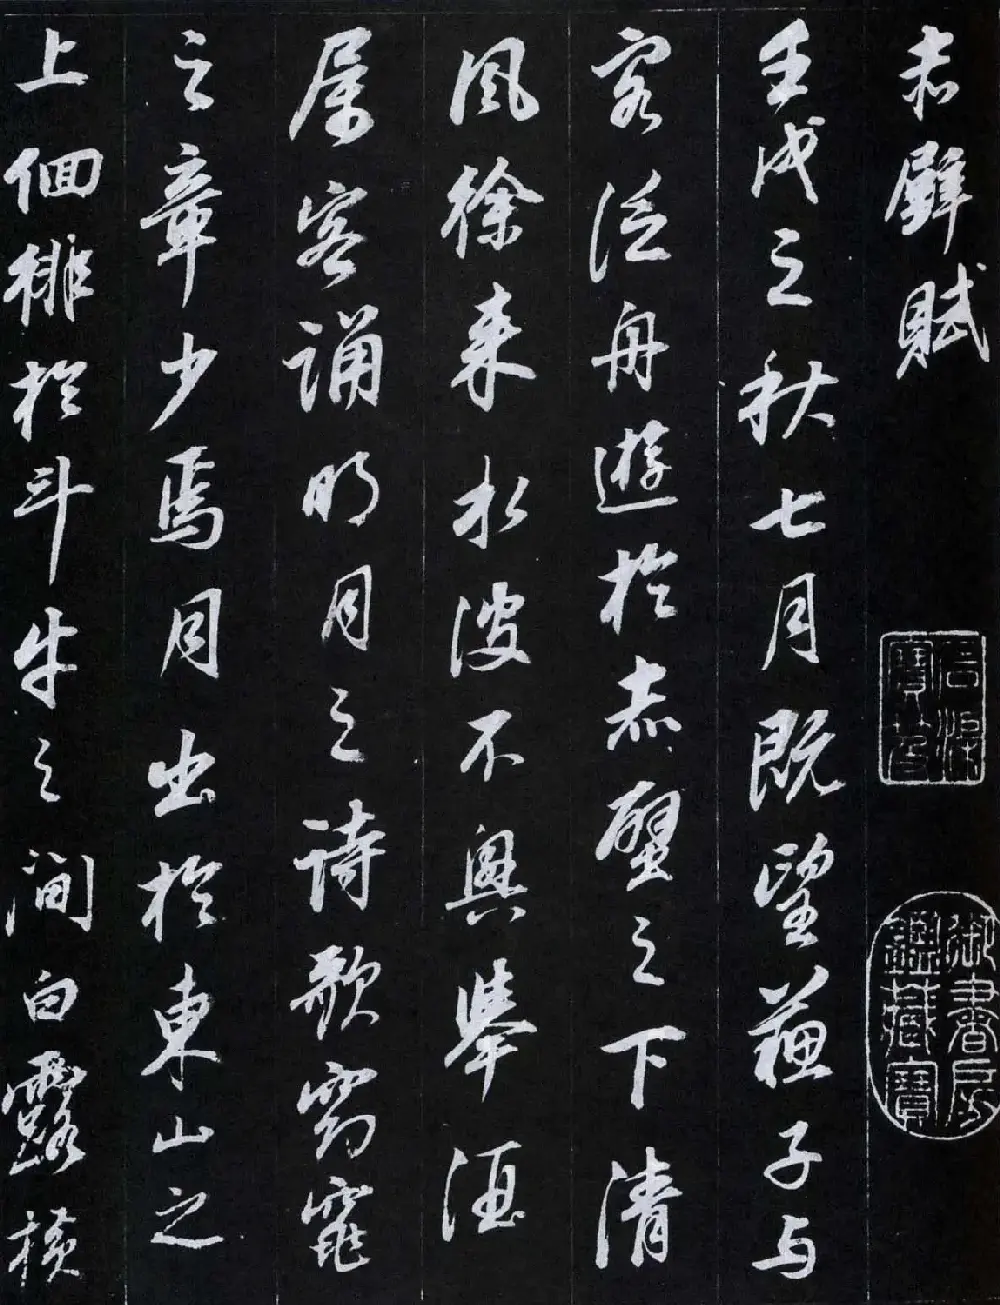 赤壁賦
壬戌之秋七月既望蘇子与
客泛舟遊於赤壁之下清
風徐来水波不興舉酒
属客誦明月之詩歌窈窕
之章少焉月出於東山之
上佪徘於斗牛之間白露橫
石渠寶笈
御書房鑑藏寶